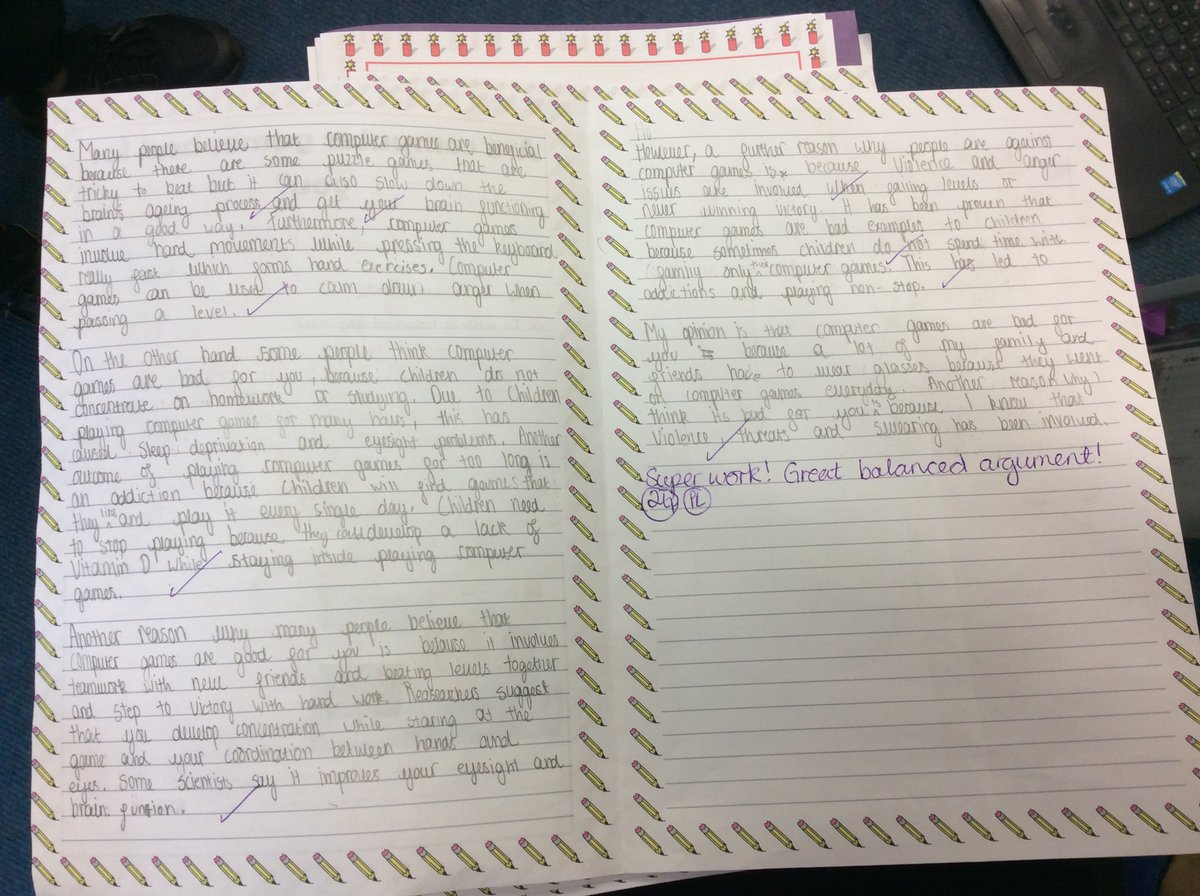 Many people believe that computer games are beneficial
because there are some puzzle games that are
tricky to beat but it can also slow down the
brains ageing process and get your brain functioning
in a good way. Furthermore, computer games
involve hand movements while pressing the keyboard
really fast which forms hand exercises. Computer
games can be used to calm down anger when
passing a level.
On the other hand some people think computer
games are bad for you, because children do not
concentrate on homework or studying. Due to children
playing computer games for many hours, this has
caused sleep deprivation and eyesight problems. Another
outcome of playing computer games for too long is
an addiction because children will find games that
they like and play it every single day. Children need
to stop playing because they could develop a lack of
Vitamin D while staying inside playing computer
games.
Another reason why many people believe that
computer games are good for you is because it involves
teamwork with new friends and beating levels together
and step to victory with hard work. Reasearchers suggest
that you develop concentration while staring at the
game and your coordination between hands and
eyes. Some scientists say it improves your eyesight and
brain
However, a further reason why people are against
computer games is because violence and anger
issues are involved when failing levels or
never winning victory. It has been proven that
computer games are bad examples to children
because sometimes children do not spend time with
family only computer games. This has led to
addictions and playing non-stop.
My opinion is that computer games are bad for
you because a lot of my family and
friends have to wear glasses because they went
on computer games everyday. Another reason why I
think its bad for you is because I know that
violence, threats and swearing has been involved.
Super work! Great balanced argument!
PL